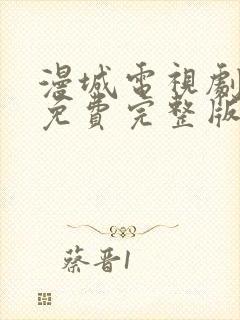 漫城電視劇
免費完整版
蔡晋1